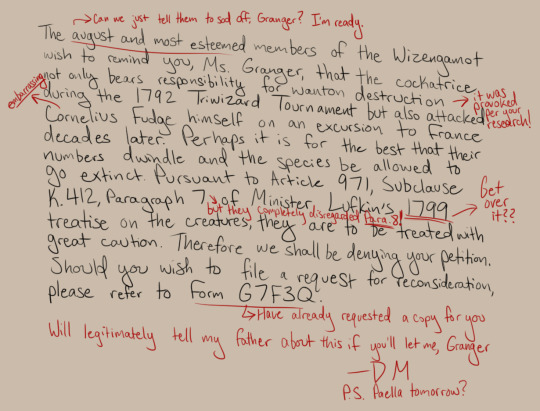 → Can we just tell them to sod off, Granger? I'm ready.
The august and most esteemed members of the Wizengamot
wish to remind you, Ms. Granger, that the cockatrice
not only bears responsibility for wanton destruction
embarrassing
→ it was
provoked
per your
research!
during the 1792 Triwizard Tournament but also attacked
Cornelius Fudge himself on an excursion to France
decades later. Perhaps it is for the best that their
numbers dwindle and the species be allowed to
go extinct. Pursuant to Article 971, Subclause
K.412, Paragraph 7, of Minister Lufkin's 1799
→ Get
over
it??
↳ but they completely disregarded Para. 8!
treatise on the creatures, they are to be treated with
great caution. Therefore we shall be denying your petition.
Should you wish to file a request for reconsideration,
please refer to Form G7F3Q.
↳ Have already requested a copy for you
Will legitimately tell my father about this if you'll let me, Granger
—DM
P.S. Paella tomorrow?